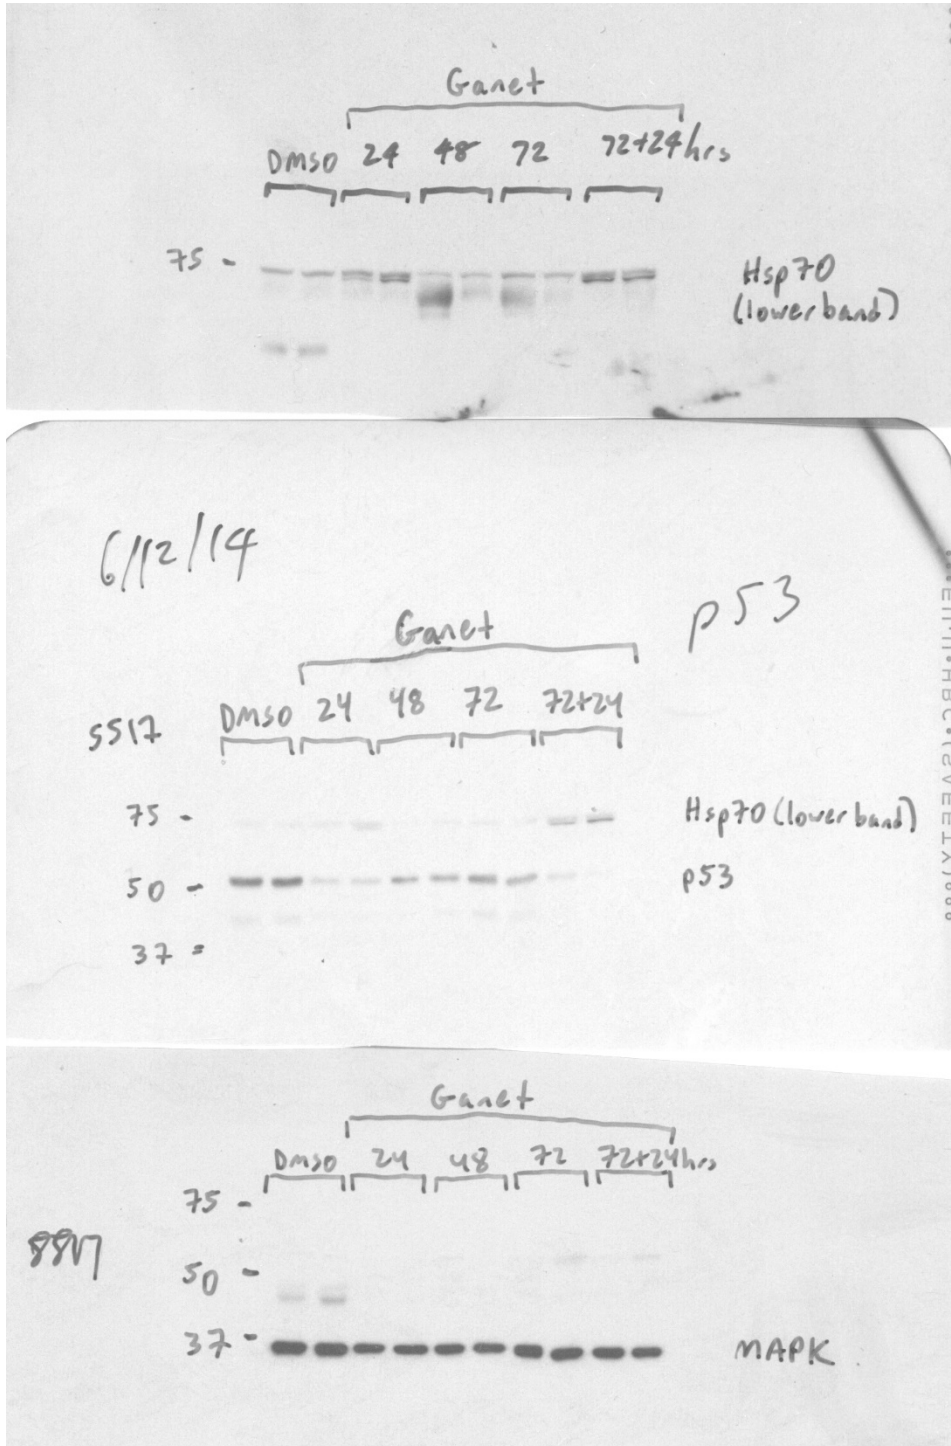 Ganet
DMSO 24 48 72 72+24 hrs
75 - Hsp70
(lower band)
6/12/14
p53
Ganet
DMSO 24 48 72 72+24
5517
75 - Hsp70 (lower band)
50 - p53
37 =
Ganet
DMSO 24 48 72 72+24 hrs
75 -
50 -
37 - MAPK